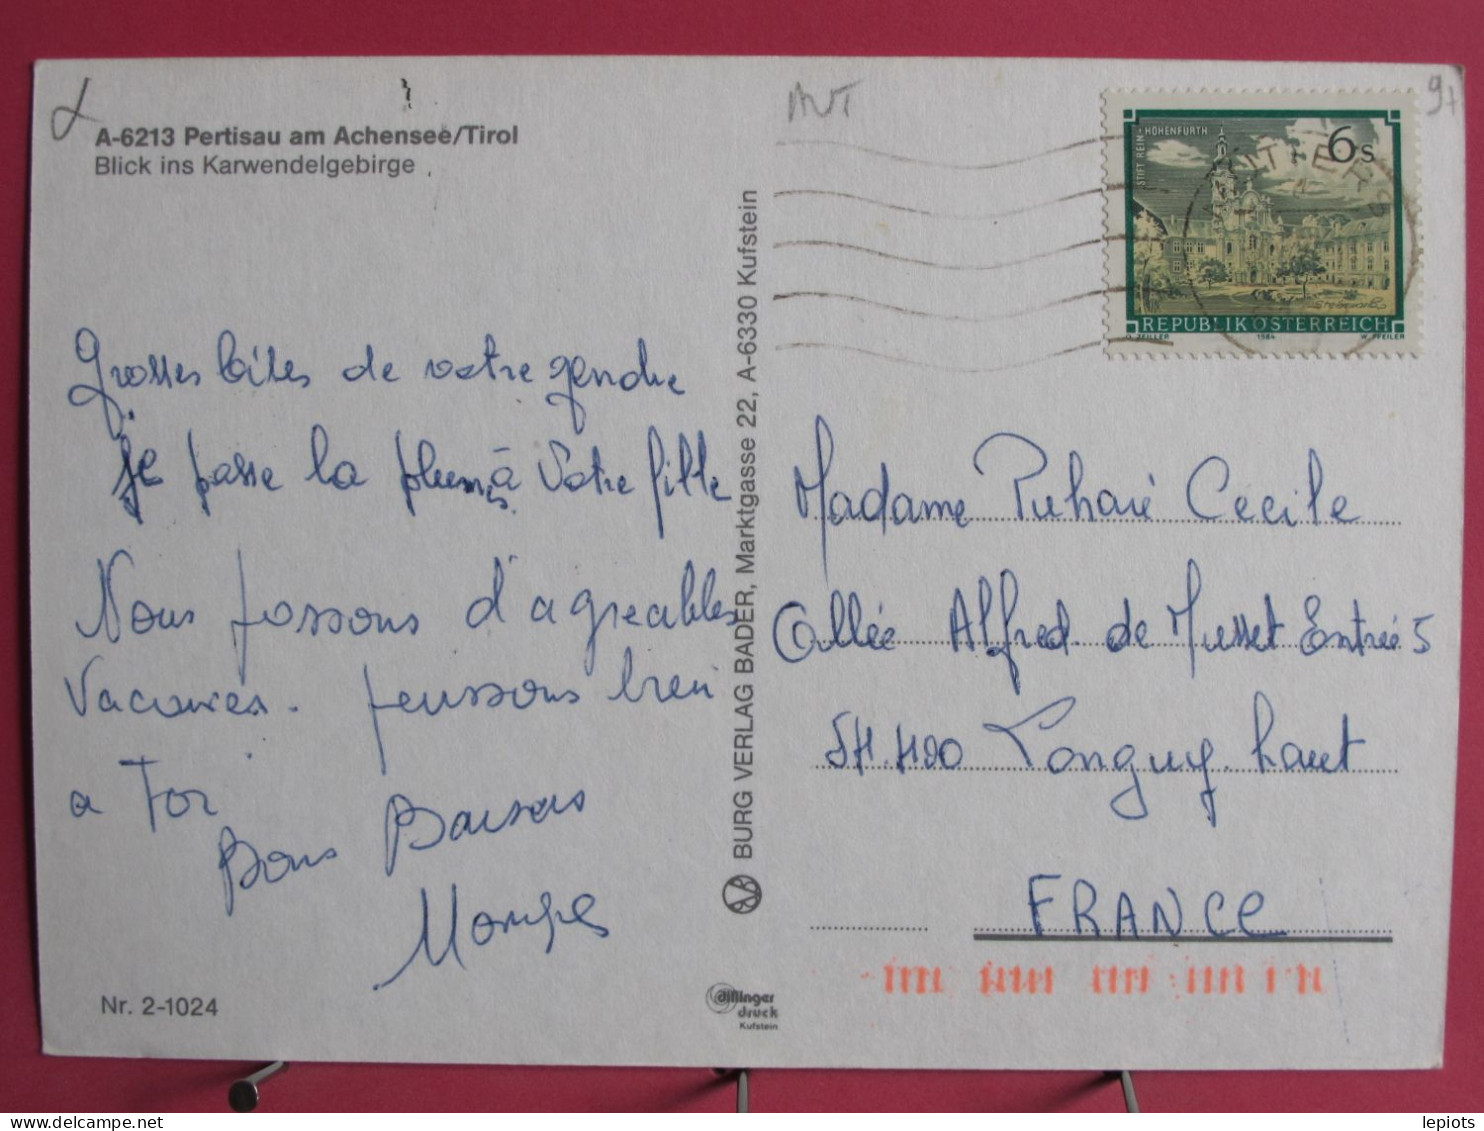 AUT
9+
A-6213 Pertisau am Achensee/Tirol
Blick ins Karwendelgebirge
STIFT REIN-HOHENFURTH
6s
REPUBLIK ÖSTERREICH
O. ZEILLER 1984 W. PFEILER
Grosses bises de votre gendre
je passe la plume à votre fille
Nous passons d'agreables
Vacances. pensons bien
a Toi
Bons Baisers
BURG VERLAG BADER, Marktgasse 22, A-6330 Kufstein
Madame Cecile
Allée Alfred de Musset Entrée 5
54.400 Longwy haut
FRANCE
Nr. 2-1024
dillinger
druck
Kufstein
lepiots